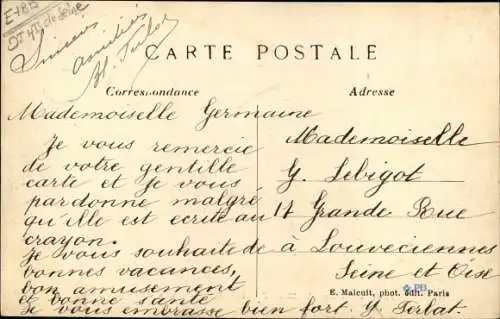 E-185
Dt Hts de Seine
Sincères
amitiés
CARTE POSTALE
Correspondance
Adresse
Mademoiselle Germaine
Je vous remercie
de votre gentille
carte et je vous
pardonne malgré
qu'elle est ecrite au
crayon.
Je vous souhaite de
bonnes vacances,
bon amusement
et bonne santé
Je vous embrasse bien fort Y. Ferbat.
Mademoiselle
Y. Lebigot
17 Grande Rue
à Louveciennes
Seine et Oise
PB
E. Malcuit, phot. édit. Paris